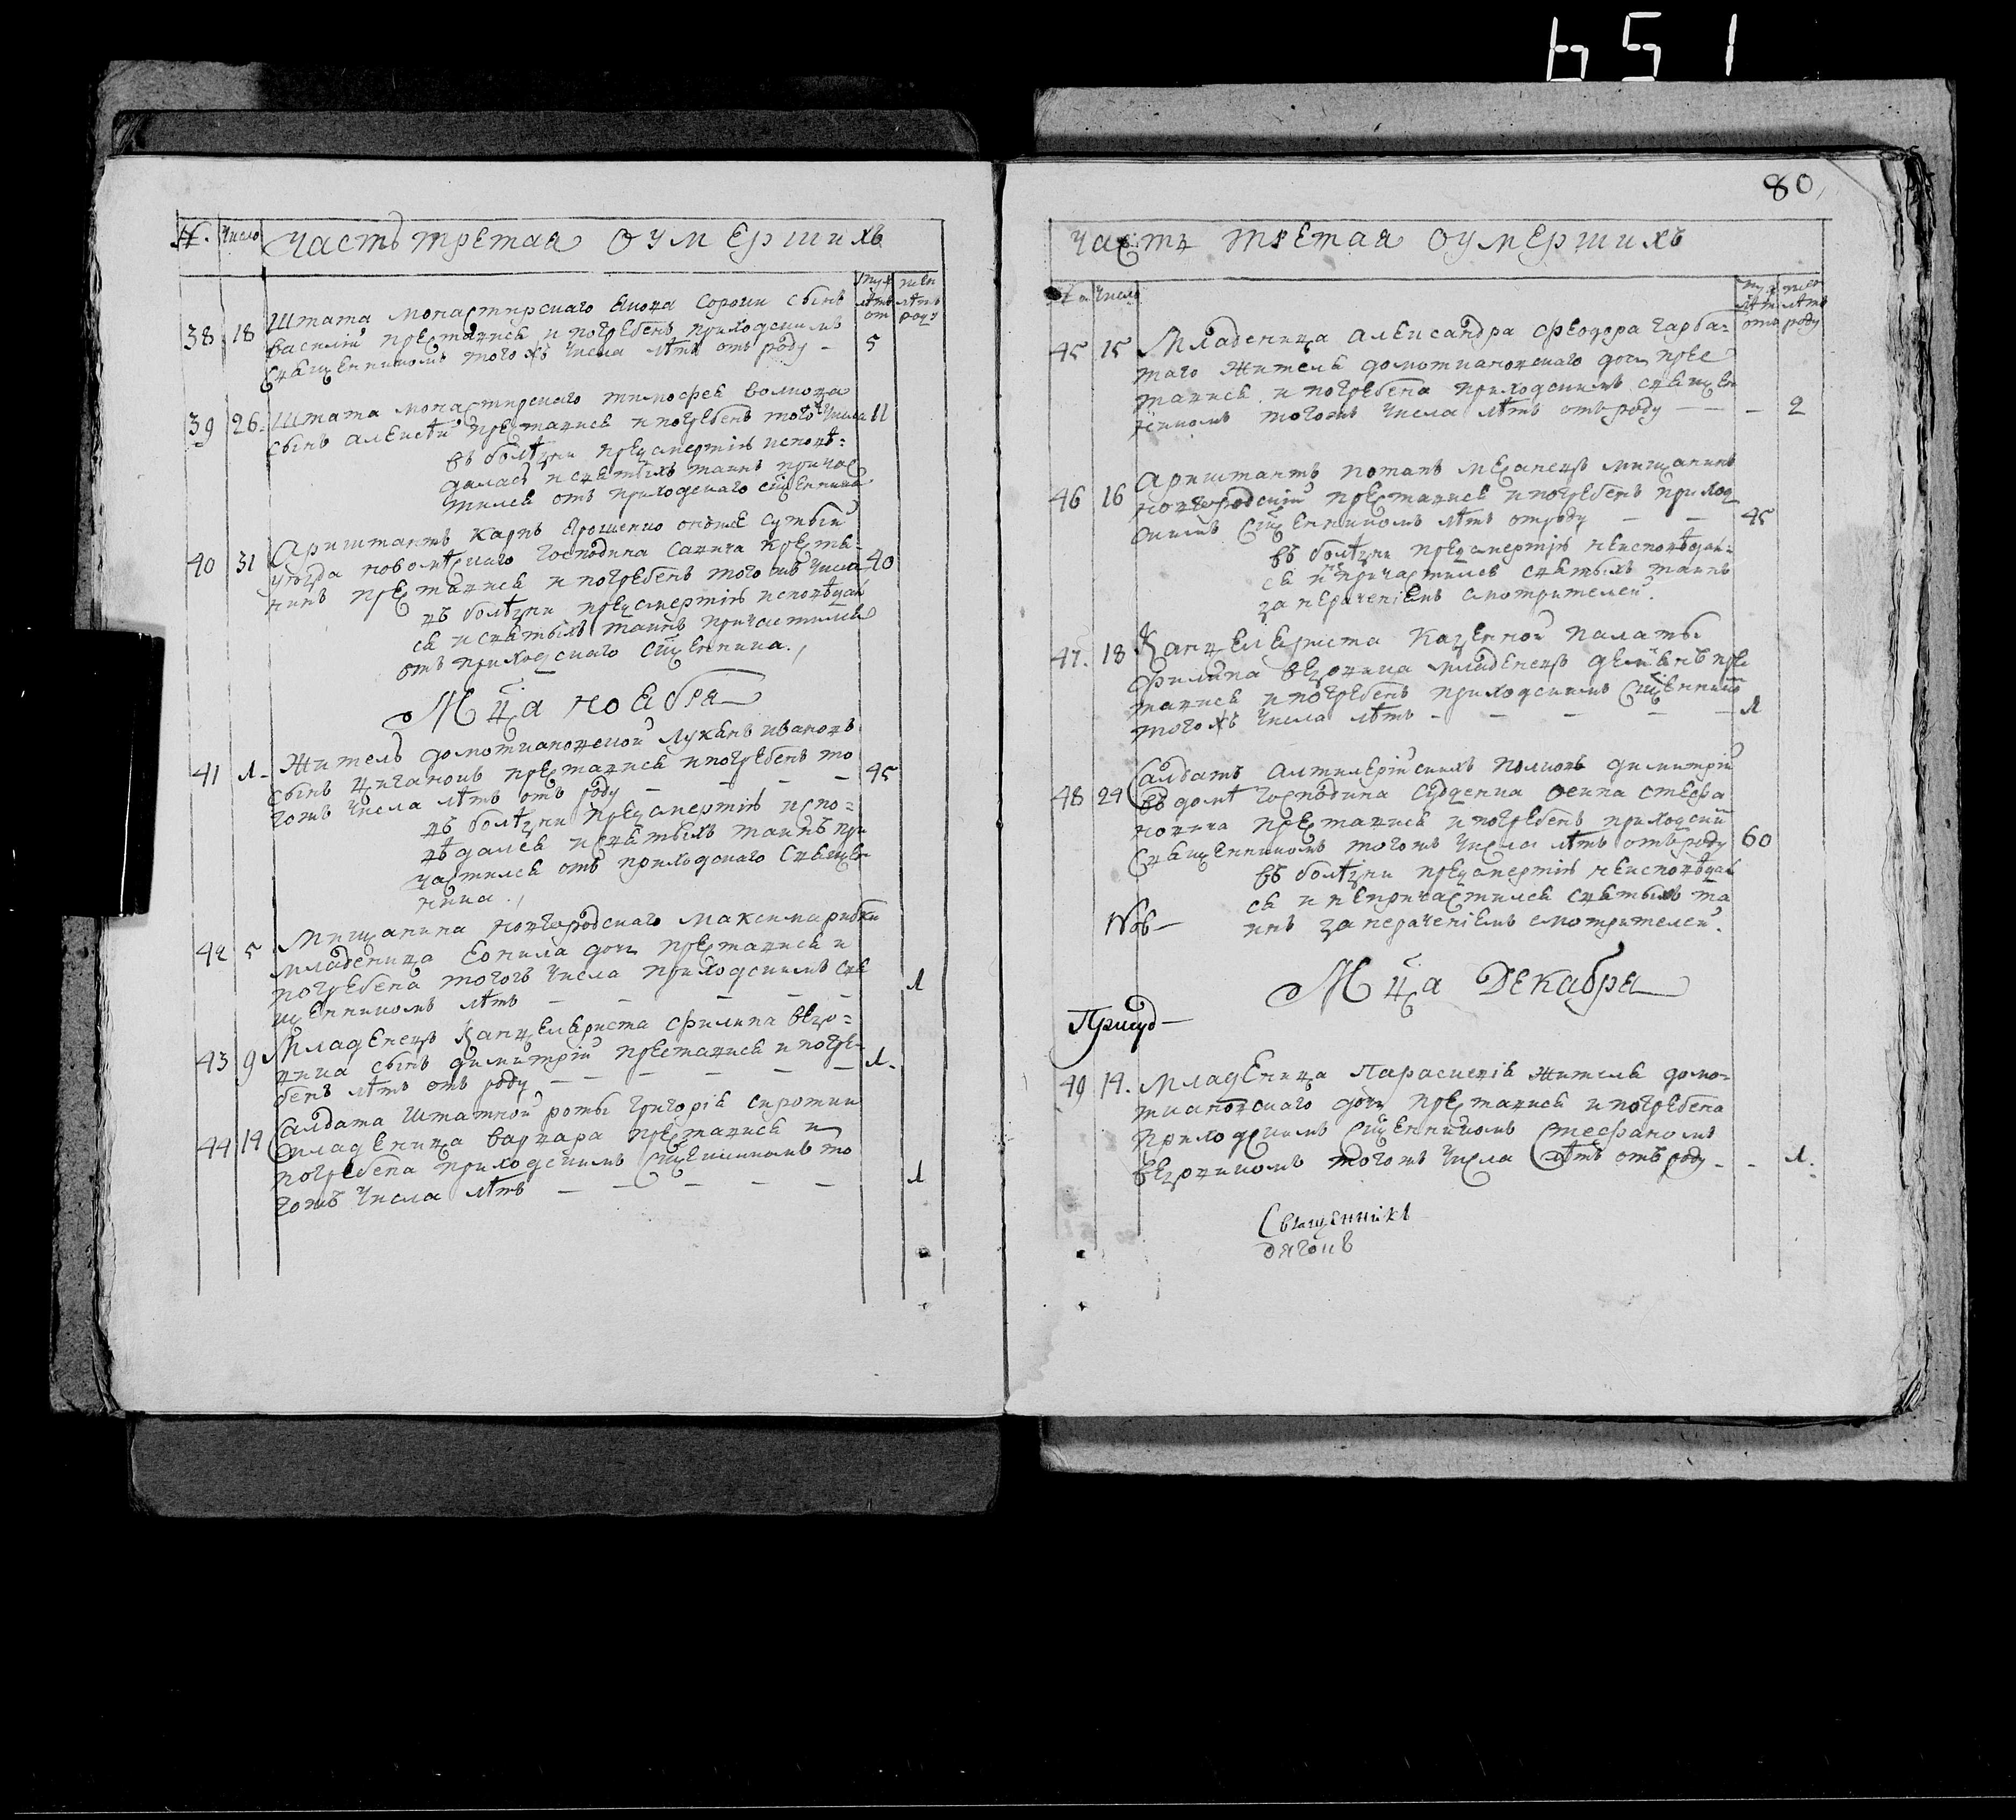 651
№. Число Часть третая оумершихъ
муж лѣтъ от
жен лѣтъ роду
38 18 Штата монастирскаго Якова Сороки сынъ
василій преставися и погребенъ приходскимъ
священникомъ того жъ числа лѣтъ отъ роду - 5
39 26. Штата монастирскаго тимофея волкова
сынъ алексѣй преставися и погребенъ того числа 11
въ болѣзни предсмертнѣ исповѣ=
дался и святыхъ таинъ причас
тился отъ приходскаго сщенника
40 31 Ариштантъ Карпъ Ярошенко
уезда господина крестя-
нинъ преставися и погребенъ того жъ числа 40
въ болѣзни предсмертнѣ исповѣдал
ся и святыхъ таинъ причастился
отъ приходскаго сщенника.
Мца ноября
41 1 - Житель домоткановской Лукянъ ивановъ
сынъ Циганокъ преставися и погребенъ то
гожъ числа лѣтъ отъ роду - - - - 45
въ болѣзни предсмертнѣ испо=
вѣдался и святыхъ таинъ при
частился отъ приходскаго священ
ника.
42 5 Мищанина новгородскаго Максима рибки
младеница дочь преставися и
погребена тогожъ числа приходскимъ свя
щенникомъ лѣтъ - - - - - 1
43 9 Младенецъ Канцеляриста филипа везо=
вика сынъ димитрій преставися и погре-
бенъ лѣтъ отъ роду - - - - - - 1.
44 14 Салдата штатной роты григорія сиротки
младеница варвара преставися и
погребена приходскимъ сщенникомъ то
гожъ числа лѣтъ - - - - - 1
80
часть третая оумершихъ
число
муж лѣтъ отъ
жен лѣтъ роду
45 15 Младеница александра феодора гарба-
таго жителя домоткановскаго дочь прес
тавися и погребена приходскимъ священ
никомъ тогожъ числа лѣтъ отъ роду - - - 2
46 16 Ариштантъ потапъ мищанинъ
новгородскій преставися и погребенъ приход
скимъ сщенникомъ лѣтъ отроду - - 45
въ болѣзни предсмертнѣ неисповѣдал-
ся и непричастился святыхъ таинъ
за нерачениемъ смотрителей.
47. 18 Канцеляриста Казенной палаты
филипа младенецъ демянъ пре
тавися и погребенъ приходскимъ сщенником
того жъ числа лѣтъ - - - - - 1
48 24 Салдатъ алтилерійскихъ полковъ димитрій
въ домѣ господина
преставися и погребенъ приходский
священникомъ тогожъ числа лѣтъ отъ роду 60
въ болѣзни предсмертнѣ неисповѣдал
ся и непричастился святыхъ та
инъ за нерачениемъ смотрителей.
Мца Декабря
49 14. Младеница Параскевія жителя домо-
ткановскаго дочь преставися и погребена
приходскимъ сщенникомъ стефаномъ
тогожъ числа лѣтъ отъ роду - - 1.
Священникъ